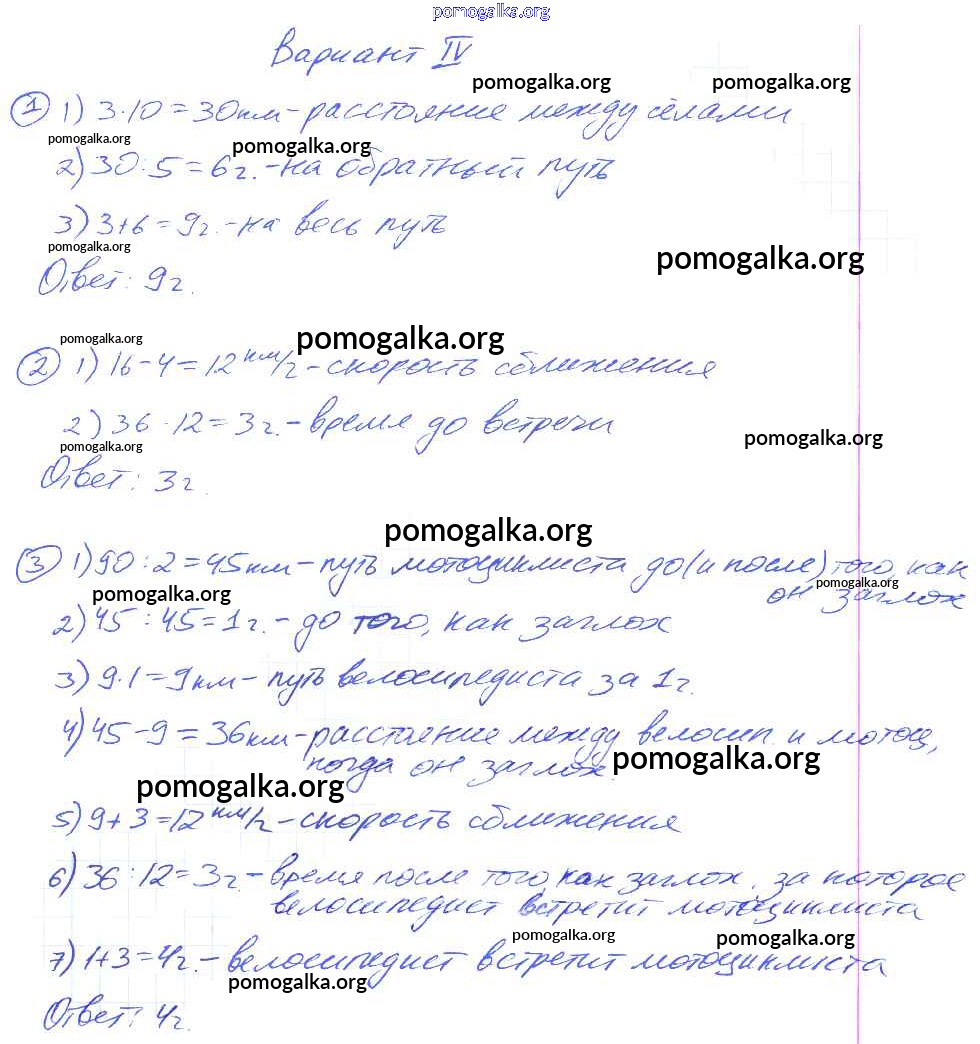 pomogalka.org
Вариант IV
pomogalka.org pomogalka.org
① 1) 3·10=30км-расстояние между сёлами
pomogalka.org pomogalka.org
2) 30:5=6г.-на обратный путь
3) 3+6=9г.-на весь путь
pomogalka.org pomogalka.org
Ответ: 9г.
pomogalka.org pomogalka.org
② 1) 16-4=12 км/г-скорость сближения
2) 36·12=3г.-время до встречи
pomogalka.org pomogalka.org
Ответ: 3г.
pomogalka.org
③ 1) 90:2=45км-путь мотоциклиста до(и после) того, как
pomogalka.org pomogalka.org
он заглох
2) 45:45=1г.-до того, как заглох
3) 9·1=9км-путь велосипедиста за 1г.
4) 45-9=36км-расстояние между велосип. и мотоц,
когда он заглох.
pomogalka.org pomogalka.org
5) 9+3=12 км/г-скорость сближения
6) 36:12=3г.-время после того, как заглох, за которое
велосипедист встретит мотоциклиста
pomogalka.org pomogalka.org
7) 1+3=4г.-велосипедист встретит мотоциклиста
pomogalka.org
Ответ: 4г.